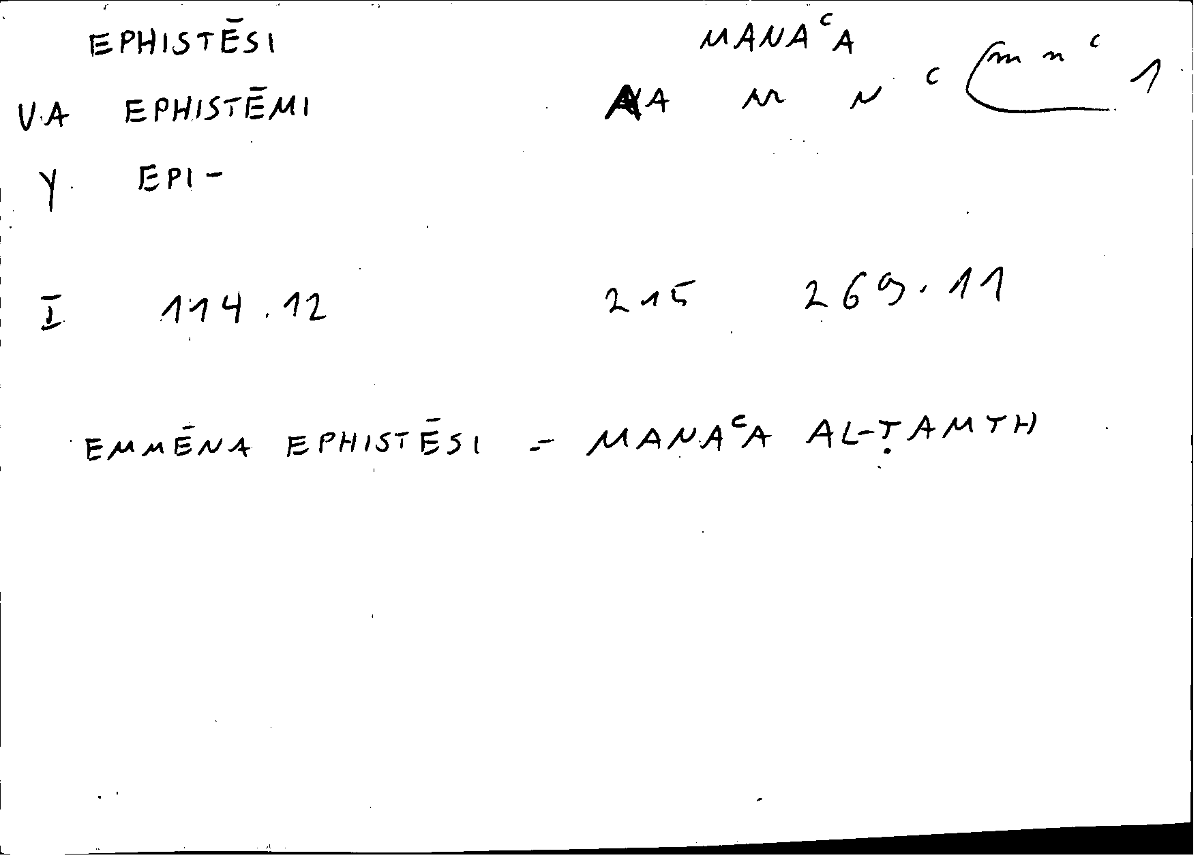 EPHISTĒSI MANAᶜA
V.A EPHISTĒMI A M N ᶜ m n ᶜ 1
Y. EPI-
I 114.12 215 269.11
EMMĒNA EPHISTĒSI = MANAᶜA AL-ṬAMTH